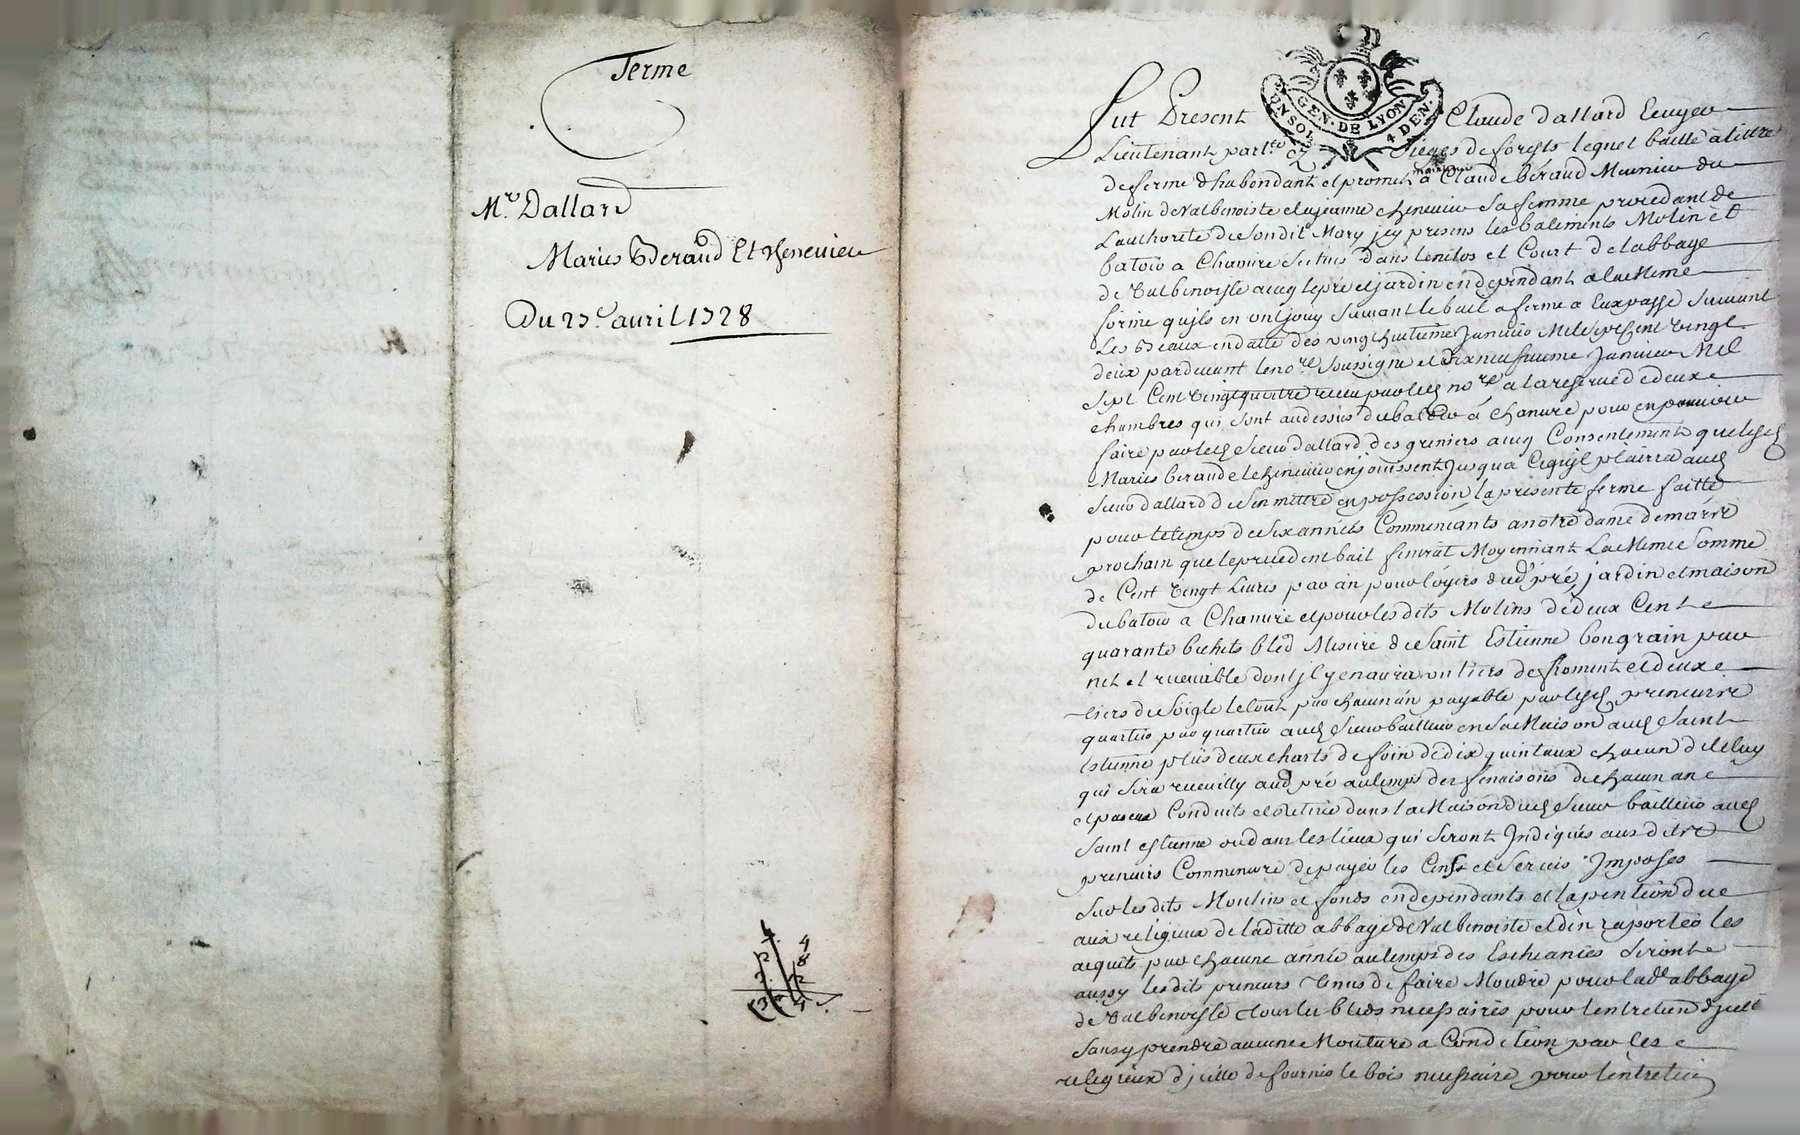 ferme
Mre Dallard
Maries Beraud Et Chenevier
Du 27e avril 1728
4
8
2
4
GEN. DE LYON
UN SOL 4 DEN.
Fut Present Claude dallard Ecuyer
Lieutenant part.er Sieges de forests lequel baille a tittre
de ferme dhabondant et promet maintenir a Claude béraud Meunier du
Molin de Valbenoiste et a jeanne chenevier Sa femme procedant de
Lauthorité de Son dit Mary jcy presens les batiments Molin et
batoir a Chanvre Scitués dans lenclos et Court de labbaye
de Valbenoiste avecq le pré et jardin en dependant a la Meme
forme quils en ont jouy Suivant le bail a ferme a Eux passé Suivant
Les Beaux en datte des vingt huitieme Janvier Mil Sept Cent vingt
deux pardevant le no.re Soussigné et dix neufvieme Janvier Mil
Sept Cent vingt quattre receu par led no.re a la reserve de deux
chambres qui sont au dessus du batoir a chanvre pour en pouvoir
faire par led Sieur dallard des greniers avecq Consentement que lesd
Maries beraud et chenevier en jouissent jusqua Ce quil plairra aud
Sieur dallard de Sen mettre en possession la presente ferme faitte
pour le temps de Six années Commencants a notre dame de mars
prochain que le precedent bail finirat Moyennant La Meme Somme
de Cent vingt Livres par an pour loyers dud. pré, jardin et maison
du batoir a Chanvre et pour les dits Molins de deux Cent
quarante bichets bled Mesure de Saint Estienne bon grain pur
net et recevable dont jl y en aura un tiers de froment et deux
tiers de Soigle le tout par chacun an payable par lesd preneurs
quartier par quartier aud Sieur bailleur en Sa Maison aud Saint
Estienne plus deux charts de foin de dix quintaux chacun de celuy
qui Sera recueilly aud pré au temps des fenaisons de chacun an
et Conduits et dans la Maison dud Sieur bailleur aud
Saint estienne ou dans les lieux qui Seront Indiqués ausdits
preneurs Comme de payer les Cens et Servis Imposés
Sur les dits Moulins et fonds en dependants et la pention due
aux religieux de laditte abbaye de Valbenoiste et den raporter les
acquits par chacune année au temps des Escheances Seront
aussy les dits preneurs tenus de faire Moudre pour lad.e abbaye
de Valbenoiste tous les bleds necessaires pour lentretien djcelle
Sans y prendre aucune Mouture a Condition par les
religieux djcelle de fournir le bois necessaire pour lentretien